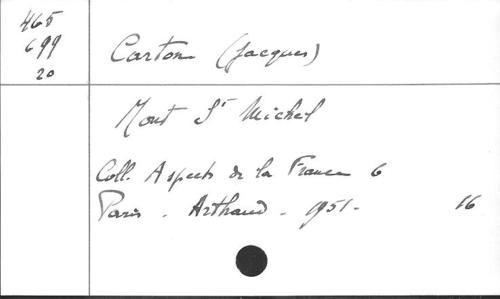 465
699
20
Carton (Jacques)
Mont St Michel
Coll. Aspects de la France 6
Paris - Arthaud - 1951 - 16